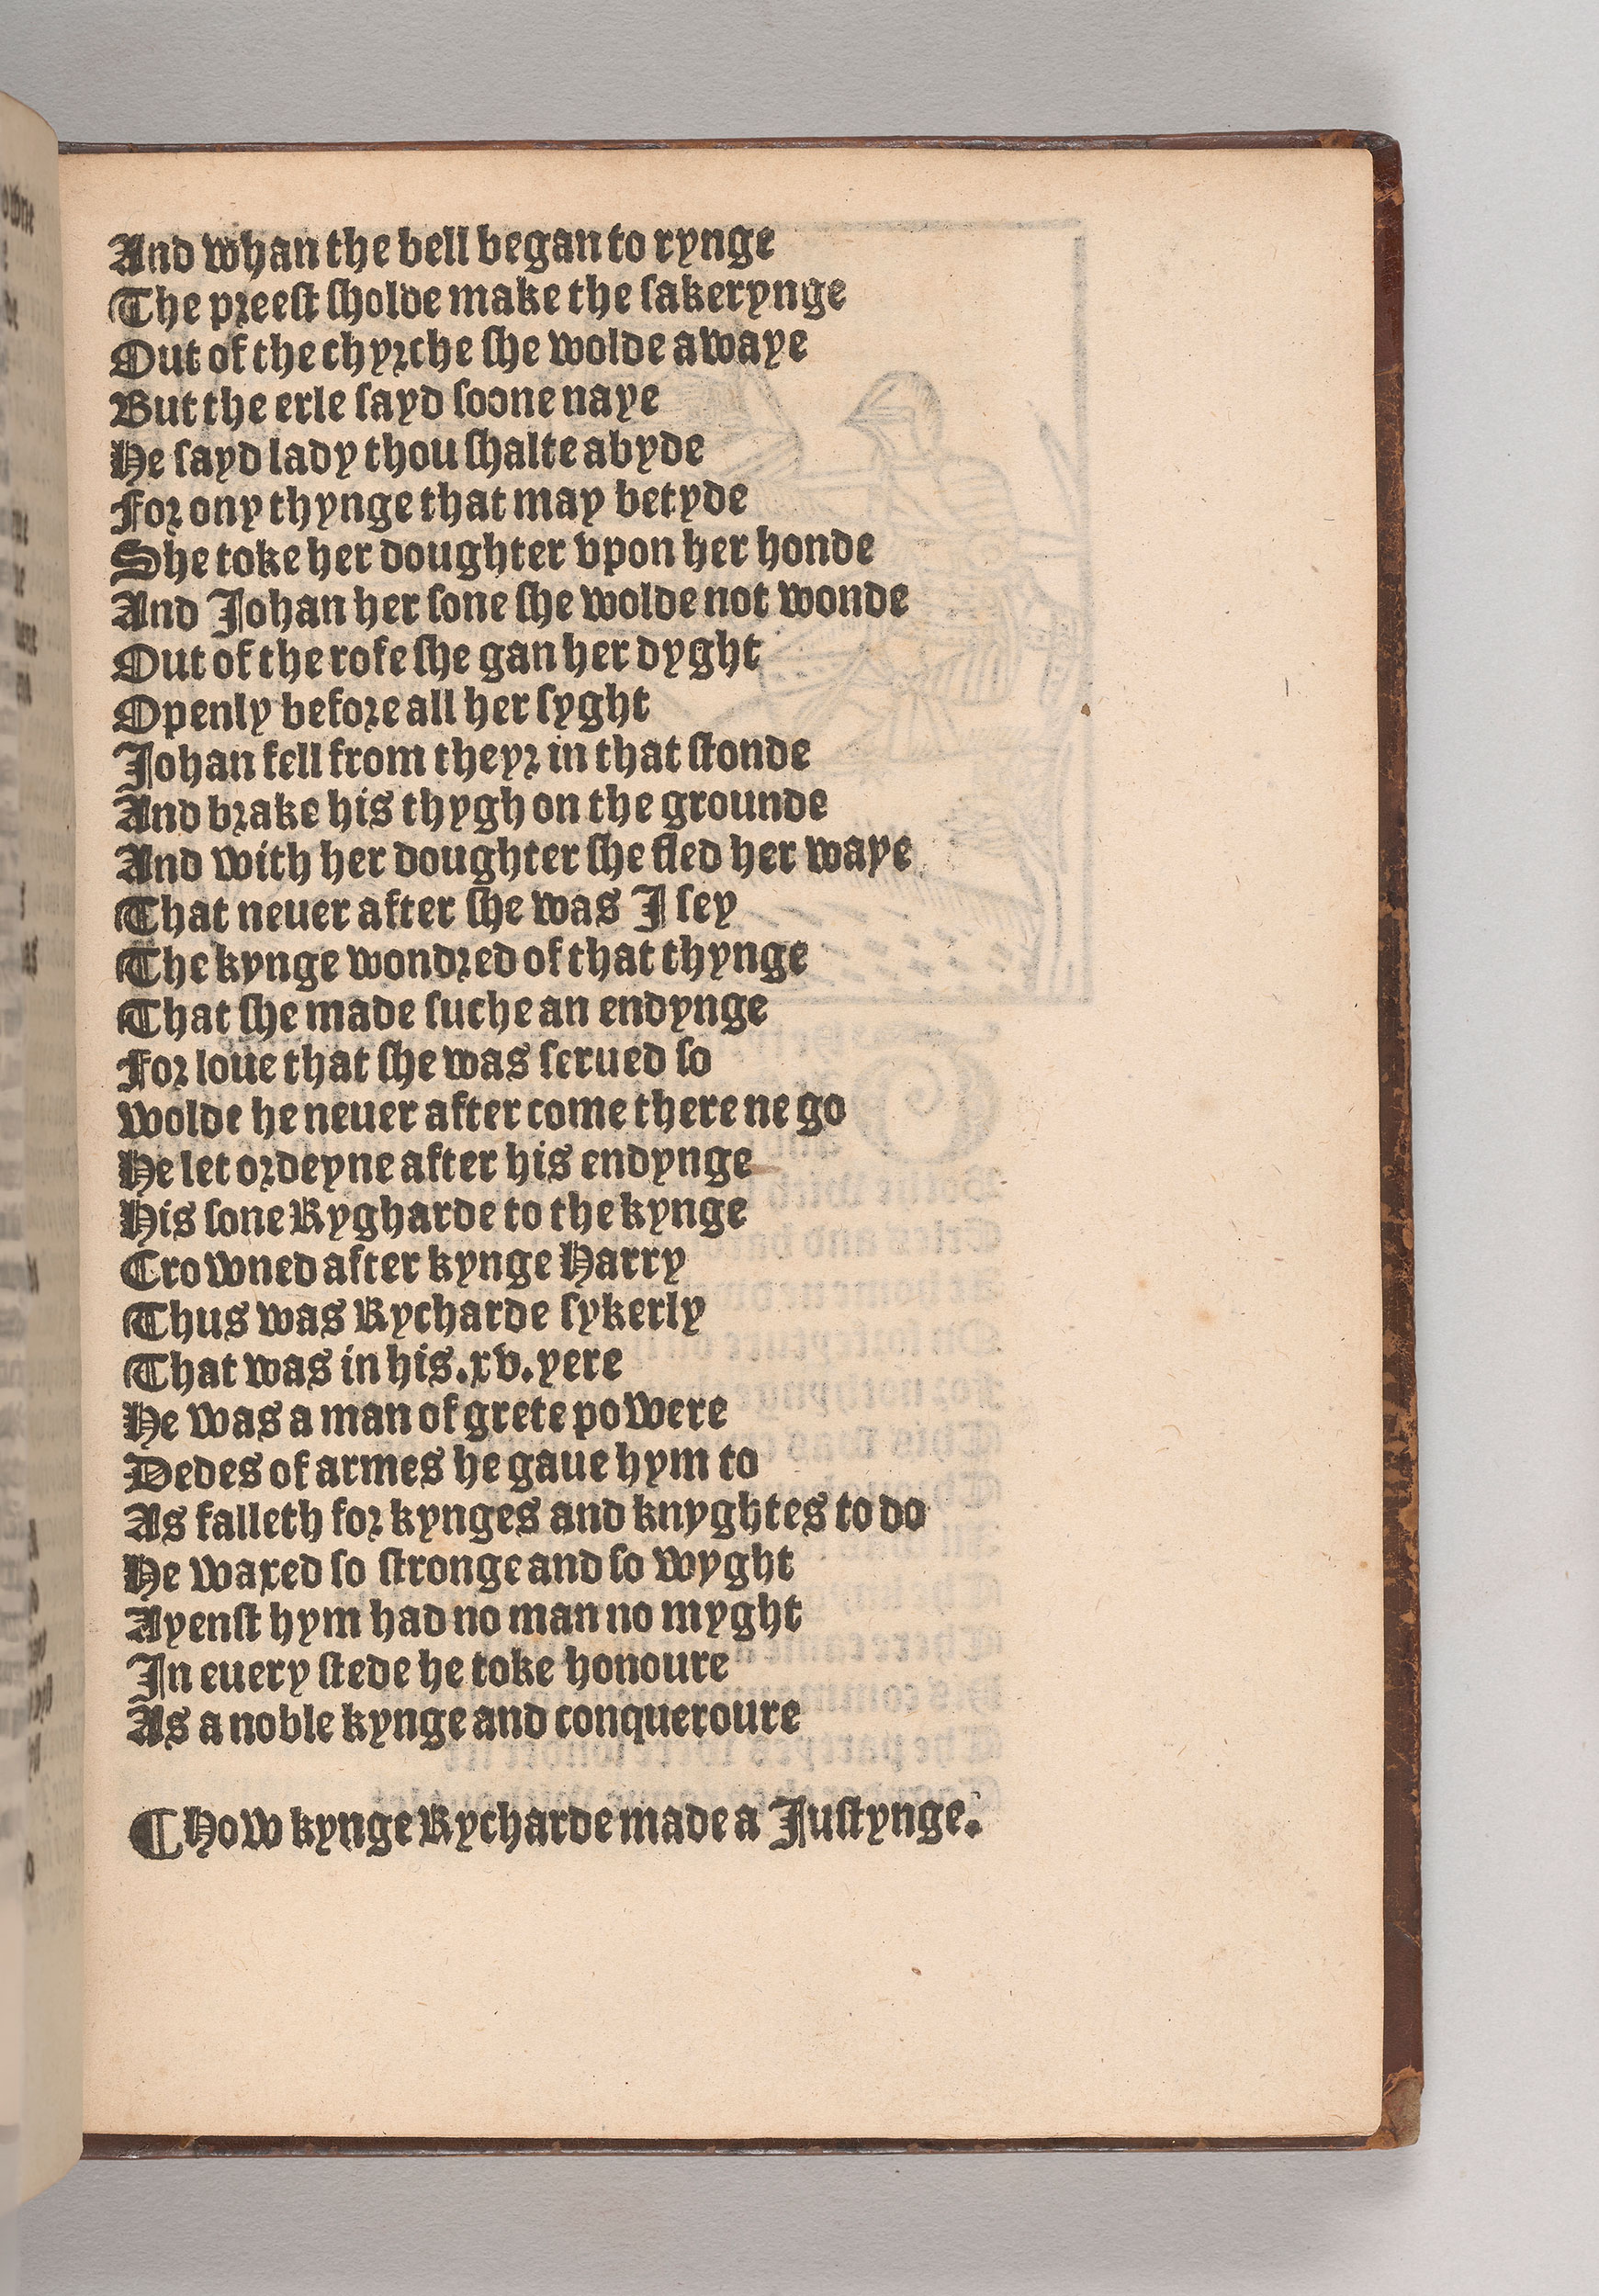 And whan the bell began to rynge
The preest sholde make the sakerynge
Out of the chyrche she wolde awaye
But the erle sayd soone naye
He sayd lady thou shalte abyde
For ony thynge that may betyde
She toke her doughter vpon her honde
And Johan her sone she wolde not wonde
Out of the rofe she gan her dyght
Openly before all her syght
Johan fell from theyr in that stonde
And brake his thygh on the grounde
And with her doughter she fled her waye
That neuer after she was I sey
The kynge wondred of that thynge
That she made suche an endynge
For loue that she was serued so
wolde he neuer after come there ne go
He let ordeyne after his endynge
His sone Rygharde to the kynge
Crowned after kynge Harry
Thus was Rycharde sykerly
That was in his .xv. yere
He was a man of grete powere
Dedes of armes he gaue hym to
As falleth for kynges and knyghtes to do
He waxed so stronge and so wyght
Ayenst hym had no man no myght
In euery stede he toke honoure
As a noble kynge and conqueroure
¶ How kynge Rycharde made a Justynge.